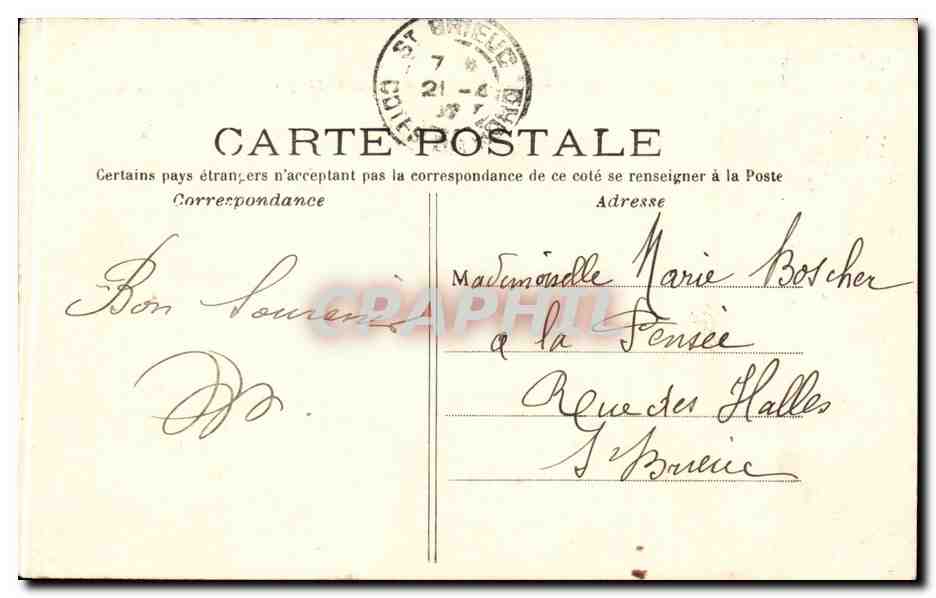 ST BRIEUC
7
21 - 4
CARTE POSTALE
Certains pays étrangers n'acceptent pas la correspondance de ce coté se renseigner à la Poste
Correspondance
Adresse
Bon Souvenir
Mademoiselle Marie Boscher
a la Pensée
Rue des Halles
St Brieuc
CPAPHIL